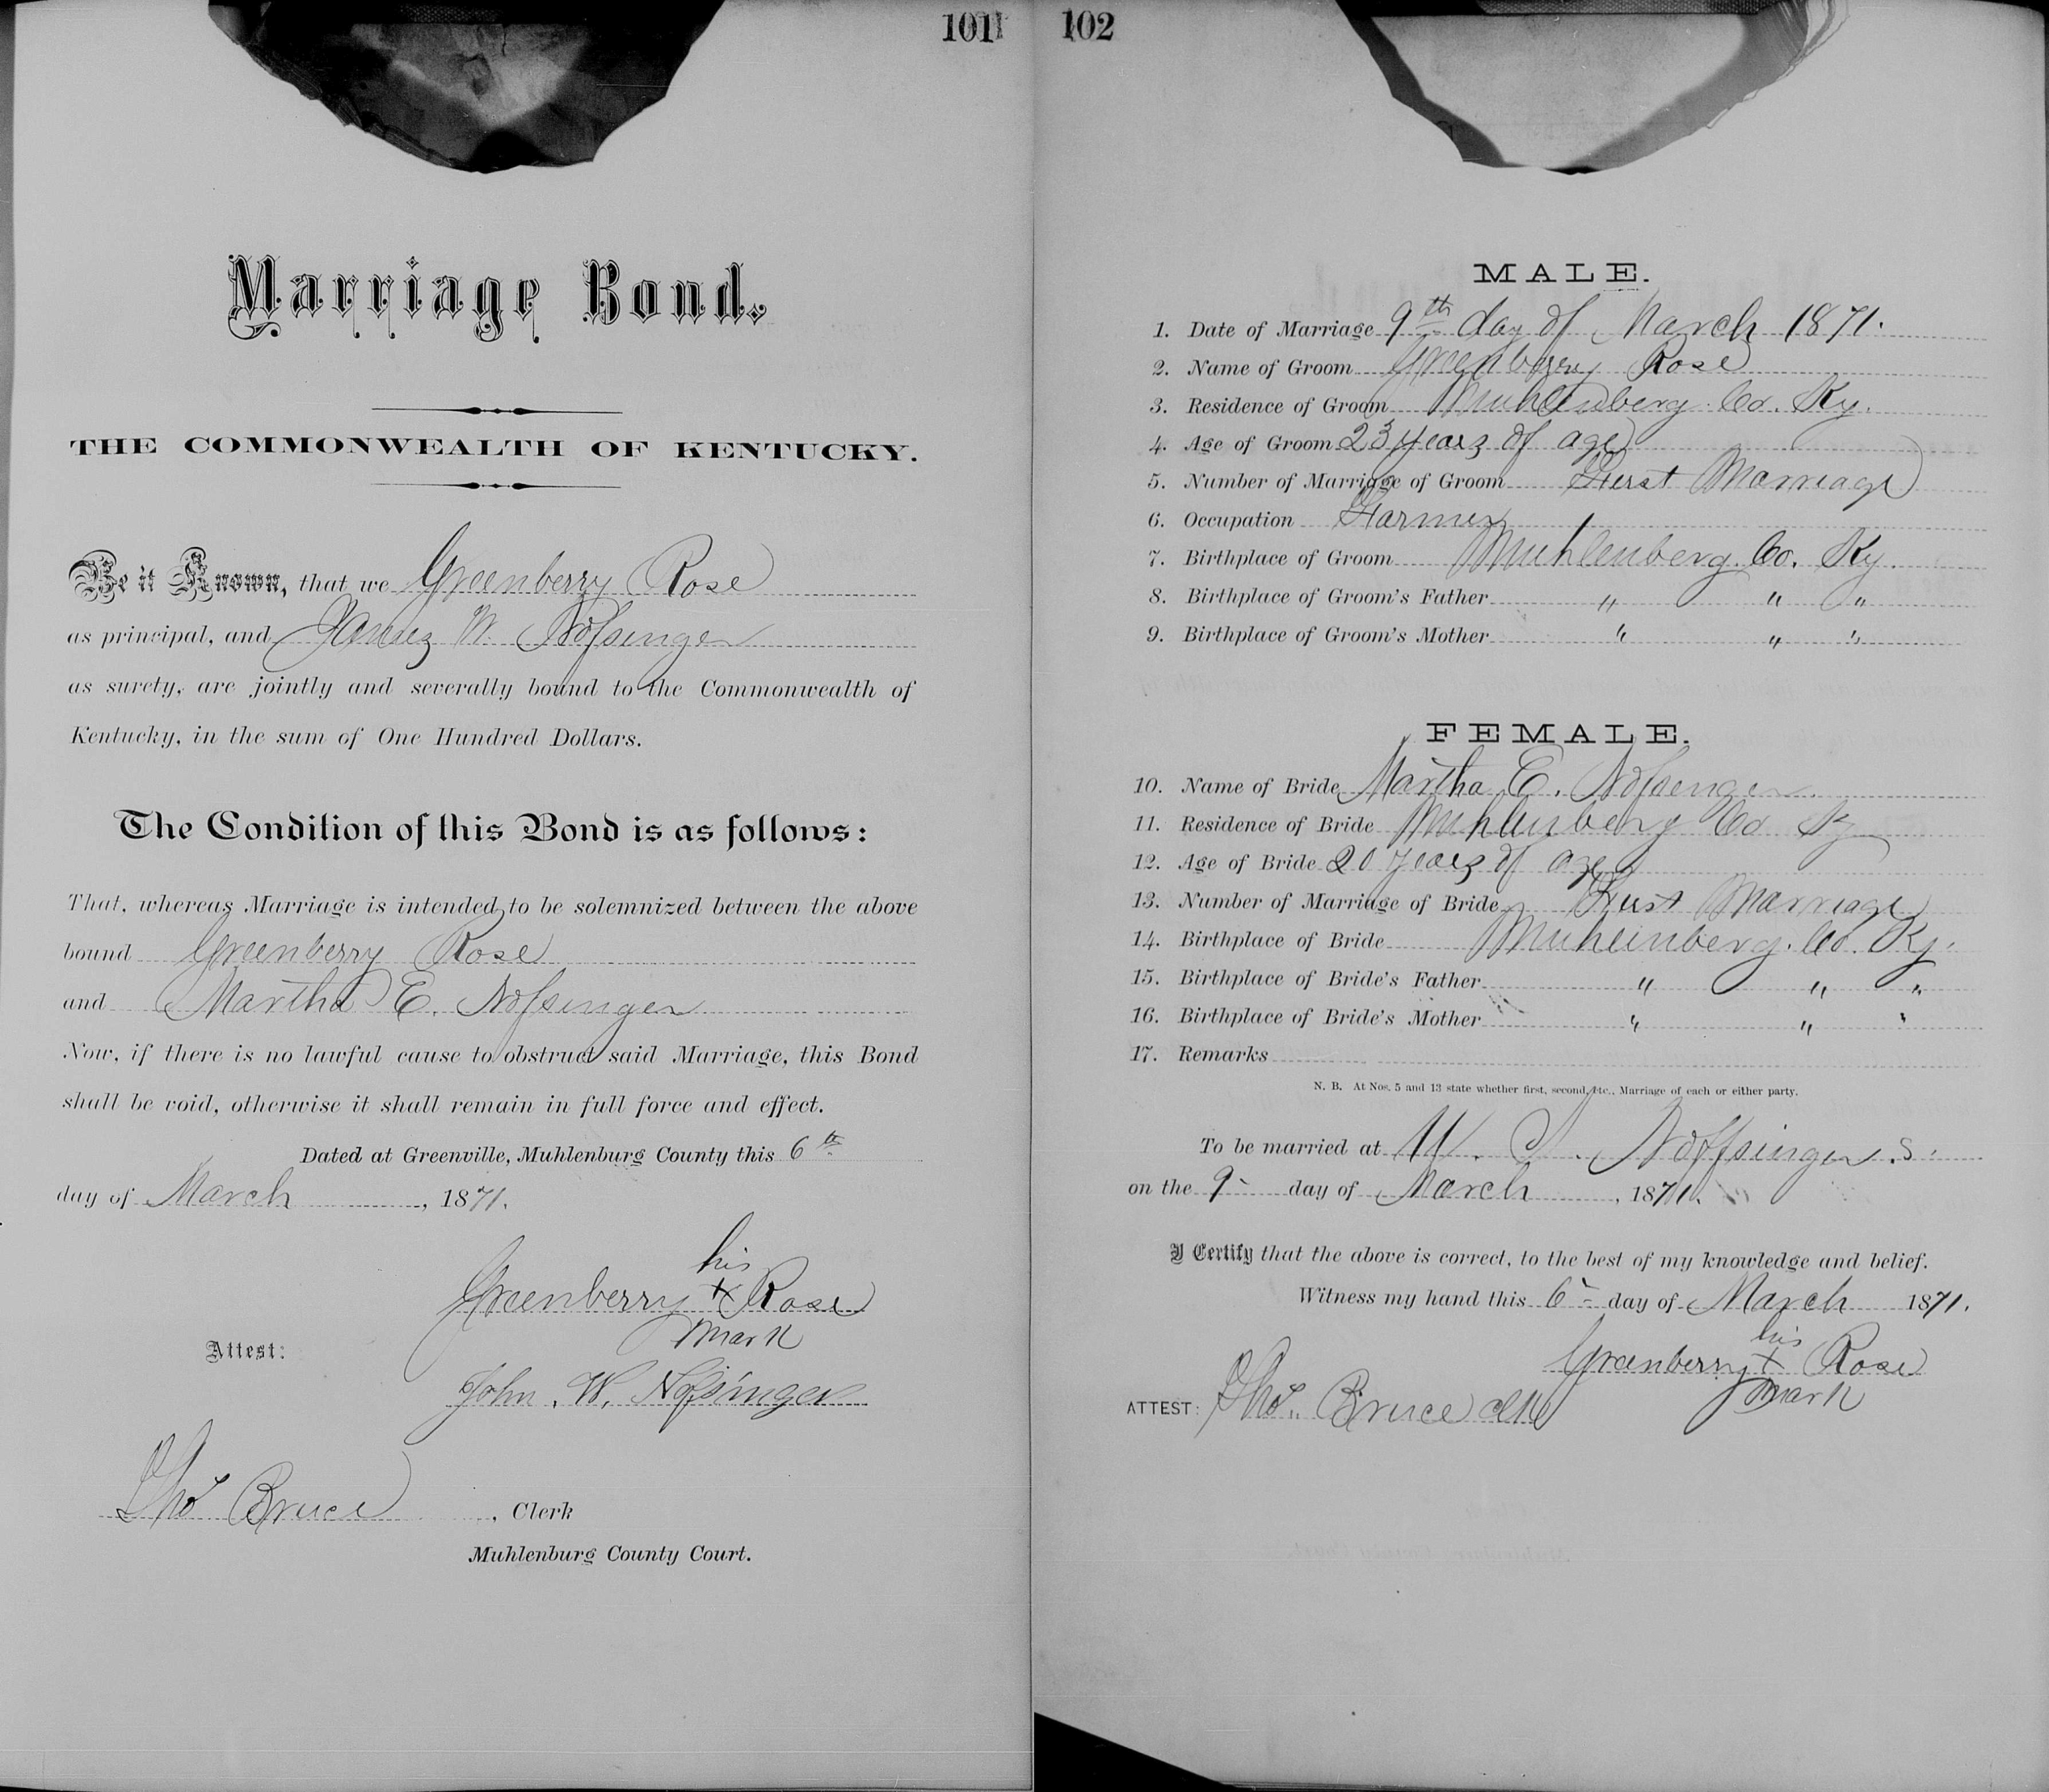 101
Marriage Bond.
THE COMMONWEALTH OF KENTUCKY.
Be it Known, that we Greenberry Rose
as principal, and James W. Nofsinger
as surety, are jointly and severally bound to the Commonwealth of
Kentucky, in the sum of One Hundred Dollars.
The Condition of this Bond is as follows:
That, whereas Marriage is intended to be solemnized between the above
bound Greenberry Rose
and Martha E. Nofsinger
Now, if there is no lawful cause to obstruct said Marriage, this Bond
shall be void, otherwise it shall remain in full force and effect.
Dated at Greenville, Muhlenburg County this 6th
day of March, 1871.
his
Greenberry x Rose
mark
Attest:
John. W. Nofsinger
Thos Bruce, Clerk
Muhlenburg County Court.
102
MALE.
1. Date of Marriage 9th day of March 1871.
2. Name of Groom Greenberry Rose
3. Residence of Groom Muhlenberg Co. Ky.
4. Age of Groom 23 years of age
5. Number of Marriage of Groom First Marriage
6. Occupation Farmer
7. Birthplace of Groom Muhlenberg Co. Ky.
8. Birthplace of Groom's Father " " "
9. Birthplace of Groom's Mother " " "
FEMALE.
10. Name of Bride Martha E. Nofsenger.
11. Residence of Bride Muhlenberg Co Ky
12. Age of Bride 20 years of age
13. Number of Marriage of Bride First Marriage
14. Birthplace of Bride Muhlenberg. Co. Ky.
15. Birthplace of Bride's Father " " "
16. Birthplace of Bride's Mother " " "
17. Remarks
N. B. At Nos. 5 and 13 state whether first, second, etc., Marriage of each or either party.
To be married at Noffsinger.s.
on the 9 day of March, 1871.
I Certify that the above is correct, to the best of my knowledge and belief.
Witness my hand this 6 day of March 1871.
his
Greenberry x Rose
mark
ATTEST: Thos. Bruce clk